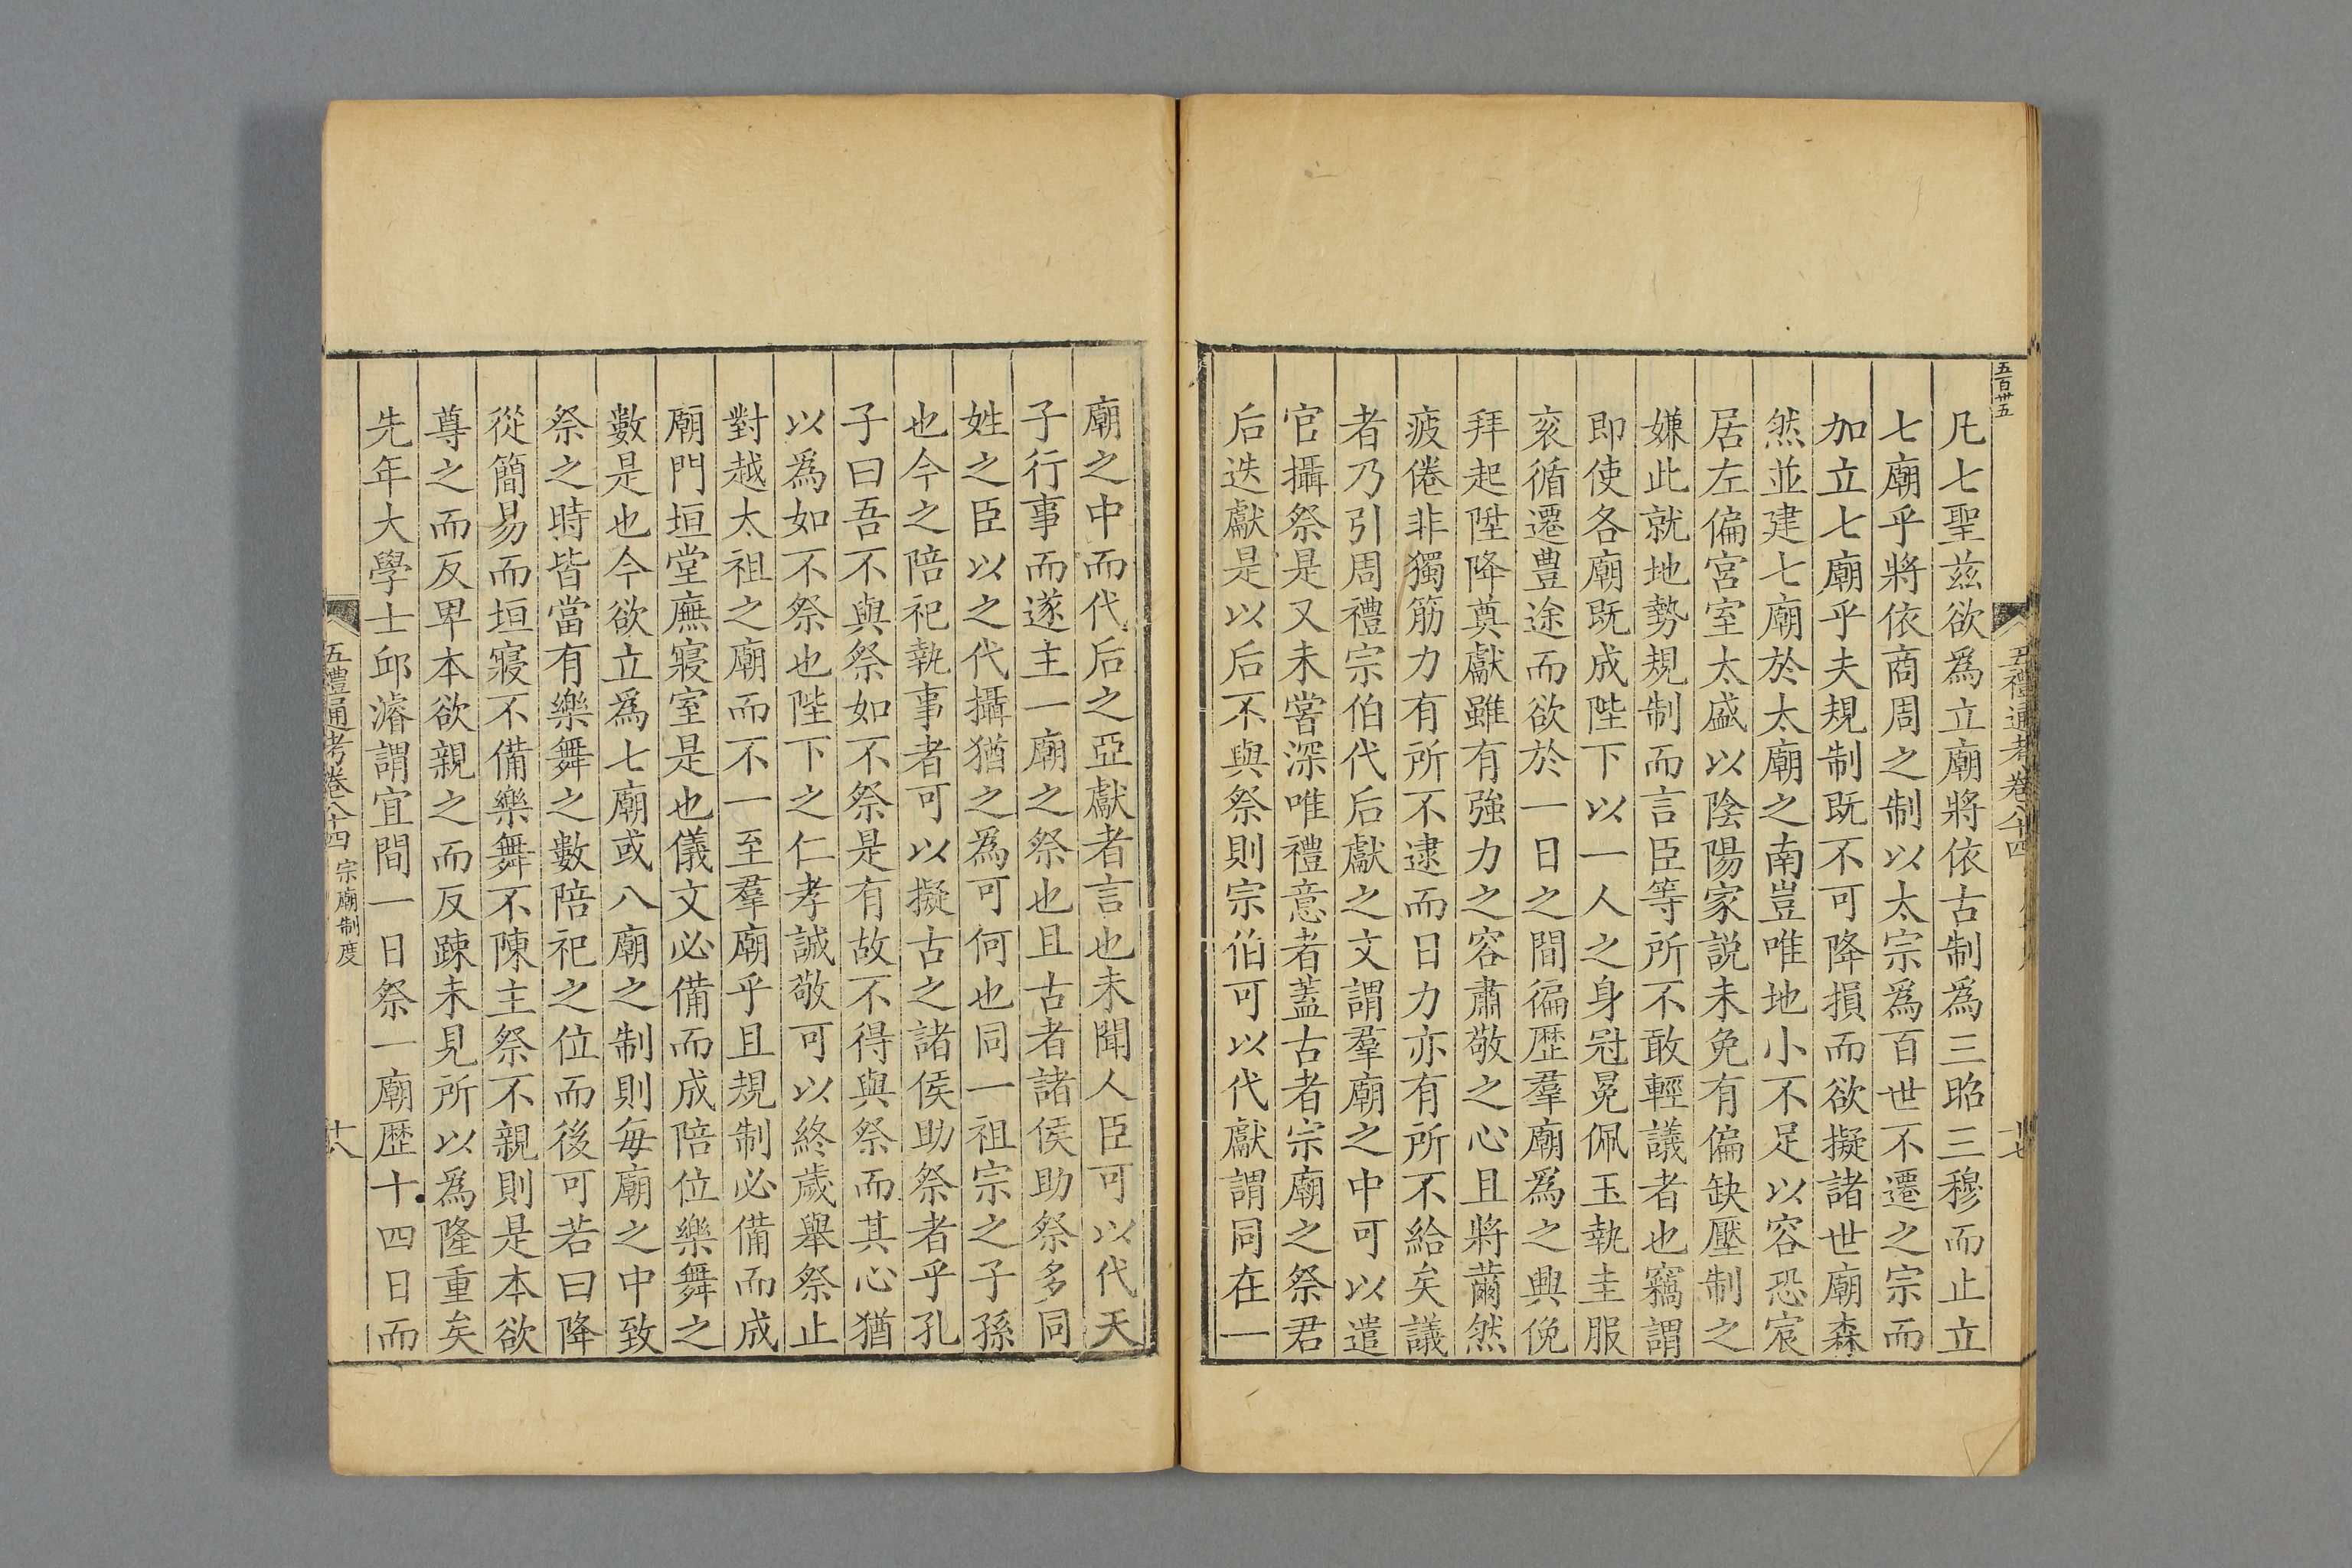 五百卅五
五禮通考卷八十四
十七
凡七聖茲欲爲立廟將依古制爲三昭三穆而止立
七廟乎將依商周之制以太宗爲百世不遷之宗而
加立七廟乎夫規制既不可降損而欲擬諸世廟森
然並建七廟於太廟之南豈唯地小不足以容恐宸
居左偏宮室太盛以陰陽家説未免有偏缺壓制之
嫌此就地勢規制而言臣等所不敢輕議者也竊謂
即使各廟既成陛下以一人之身冠冕佩玉執圭服
衮循遷豊途而欲於一日之間徧歴羣廟爲之興俛
拜起陞降奠獻雖有強力之容肅敬之心且將薾然
疲倦非獨筋力有所不逮而日力亦有所不給矣議
者乃引周禮宗伯代后獻之文謂羣廟之中可以遣
官攝祭是又未嘗深唯禮意者蓋古者宗廟之祭君
后迭獻是以后不與祭則宗伯可以代獻謂同在一
廟之中而代后之亞獻者言也未聞人臣可以代天
子行事而遂主一廟之祭也且古者諸侯助祭多同
姓之臣以之代攝猶之爲可何也同一祖宗之子孫
也今之陪祀執事者可以擬古之諸侯助祭者乎孔
子曰吾不與祭如不祭是有故不得與祭而其心猶
以爲如不祭也陛下之仁孝誠敬可以終歲舉祭止
對越太祖之廟而不一至羣廟乎且規制必備而成
廟門垣堂廡寢室是也儀文必備而成陪位樂舞之
數是也今欲立爲七廟或八廟之制則每廟之中致
祭之時皆當有樂舞之數陪祀之位而後可若曰降
從簡易而垣寢不備樂舞不陳主祭不親則是本欲
尊之而反卑本欲親之而反踈未見所以爲隆重矣
先年大學士邱濬謂宜間一日祭一廟歴十四日而
五禮通考卷八十四 宗廟制度
十八